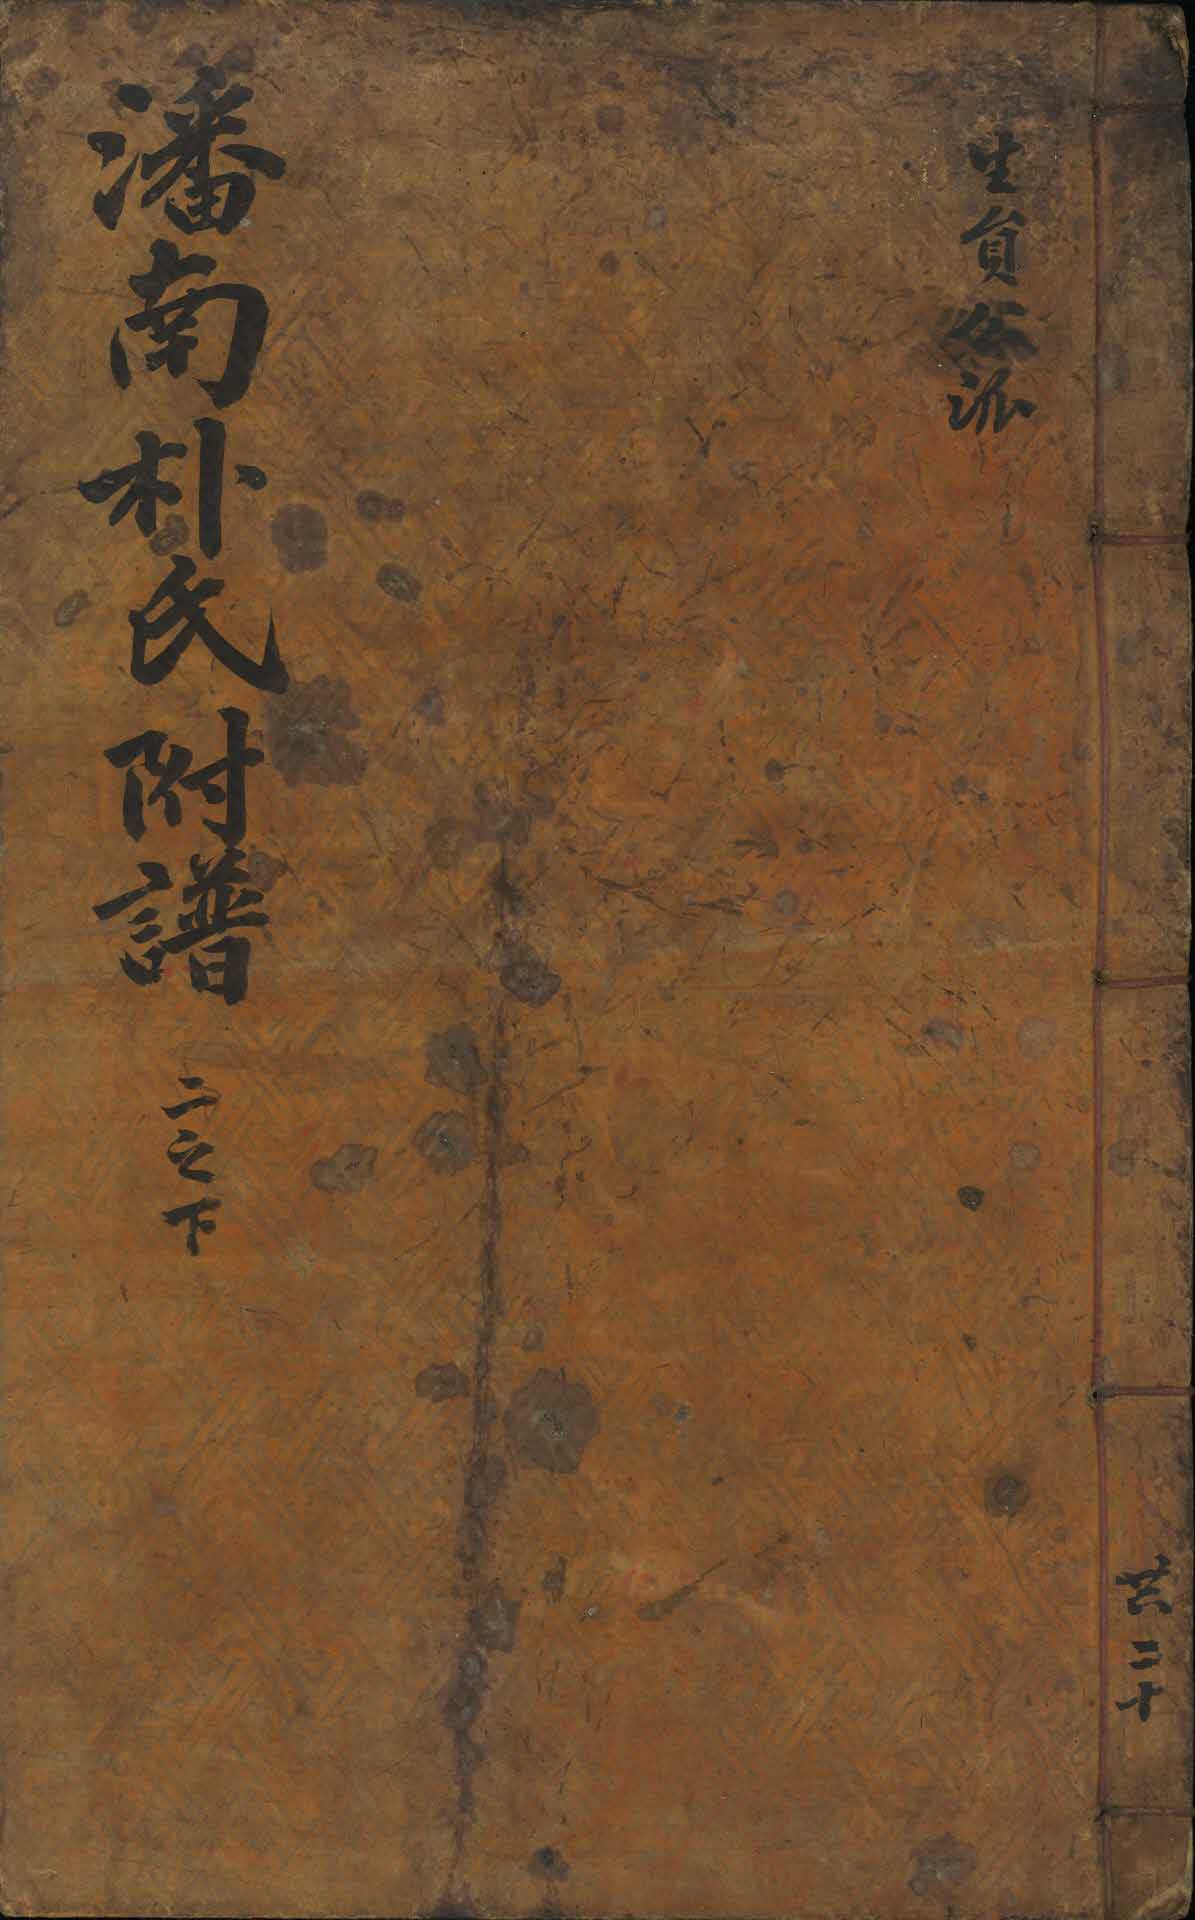 生員公派
潘南朴氏附譜 二之下
共二十